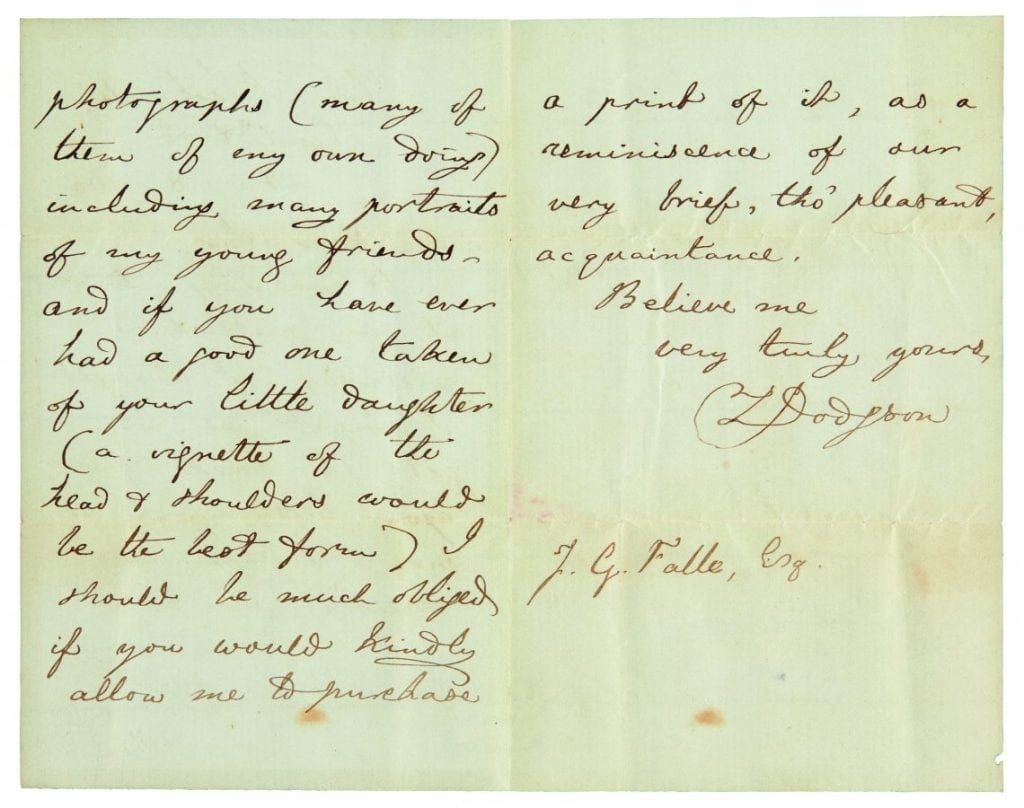 photographs (many of
them of my own doing)
including many portraits
of my young friends —
and if you have ever
had a good one taken
of your little daughter
(a vignette of the
head & shoulders would
be the best form) I
should be much obliged
if you would kindly
allow me to purchase
a print of it, as a
reminiscence of our
very brief, tho' pleasant,
acquaintance.
Believe me
very truly yours,
CLDodgson
T. G. Falle, Esq.